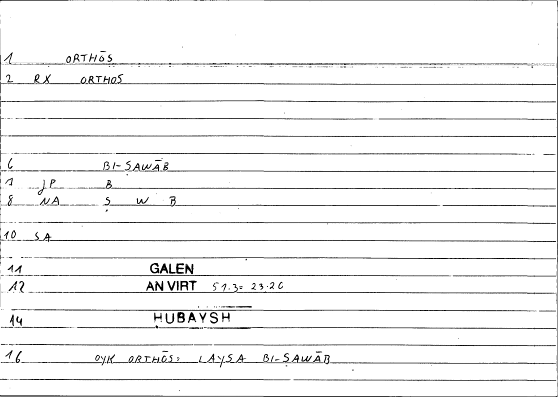 1 ORTHŌS
2 RX ORTHOS
6 BI-SAWĀB
7 JP B
8 NA S W B
10 SA
11 GALEN
12 AN VIRT 51.3= 23.20
14 HUBAYSH
16 OYK ORTHŌS: LAYSA BI-SAWĀB